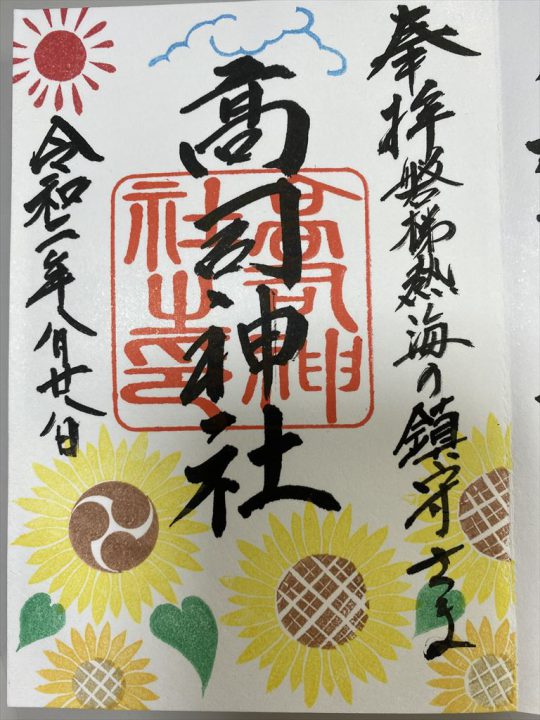 奉拝 磐梯熱海の鎮守さま
高司神社
高司神社之印
令和二年八月廿八日